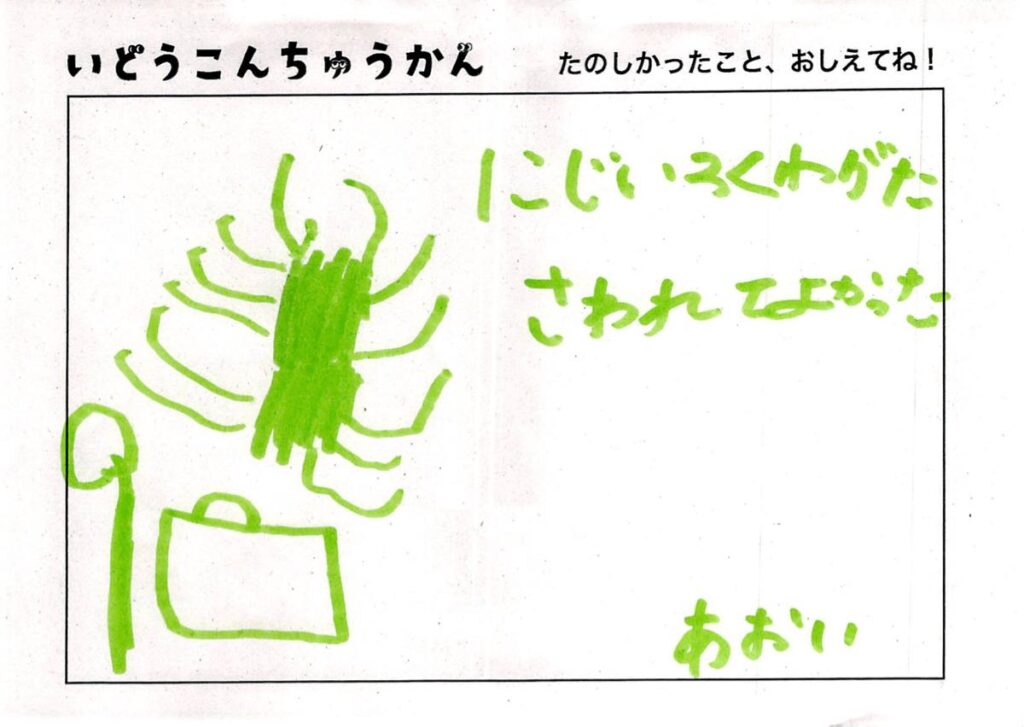 いどうこんちゅうかん
たのしかったこと、おしえてね！
にじいろくわがた
さわれてよかった
あおい